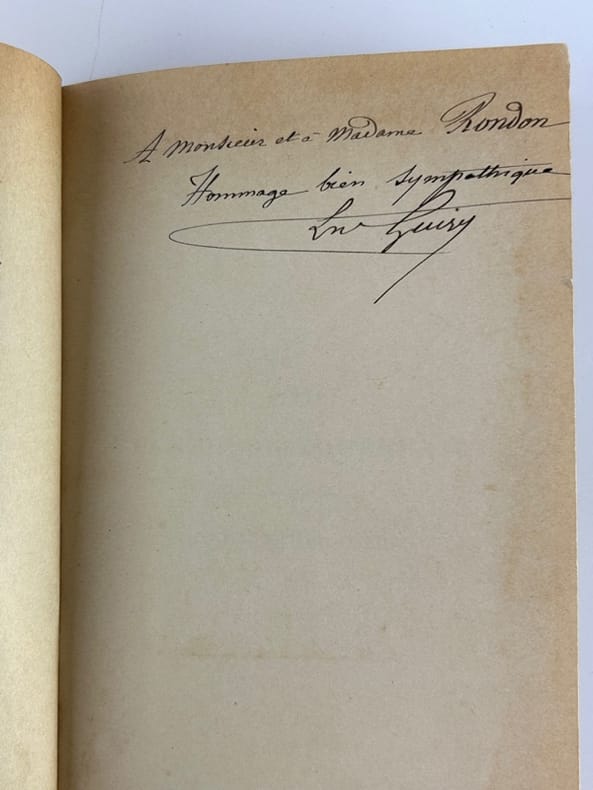 A Monsieur et à Madame Rondon
Hommage bien sympathique